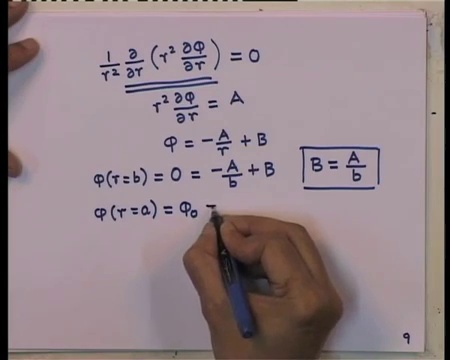 1/r² ∂/∂r (r² ∂φ/∂r) = 0
r² ∂φ/∂r = A
φ = -A/r + B
φ(r=b) = 0 = -A/b + B   B = A/b
φ(r=a) = φ₀ =
9